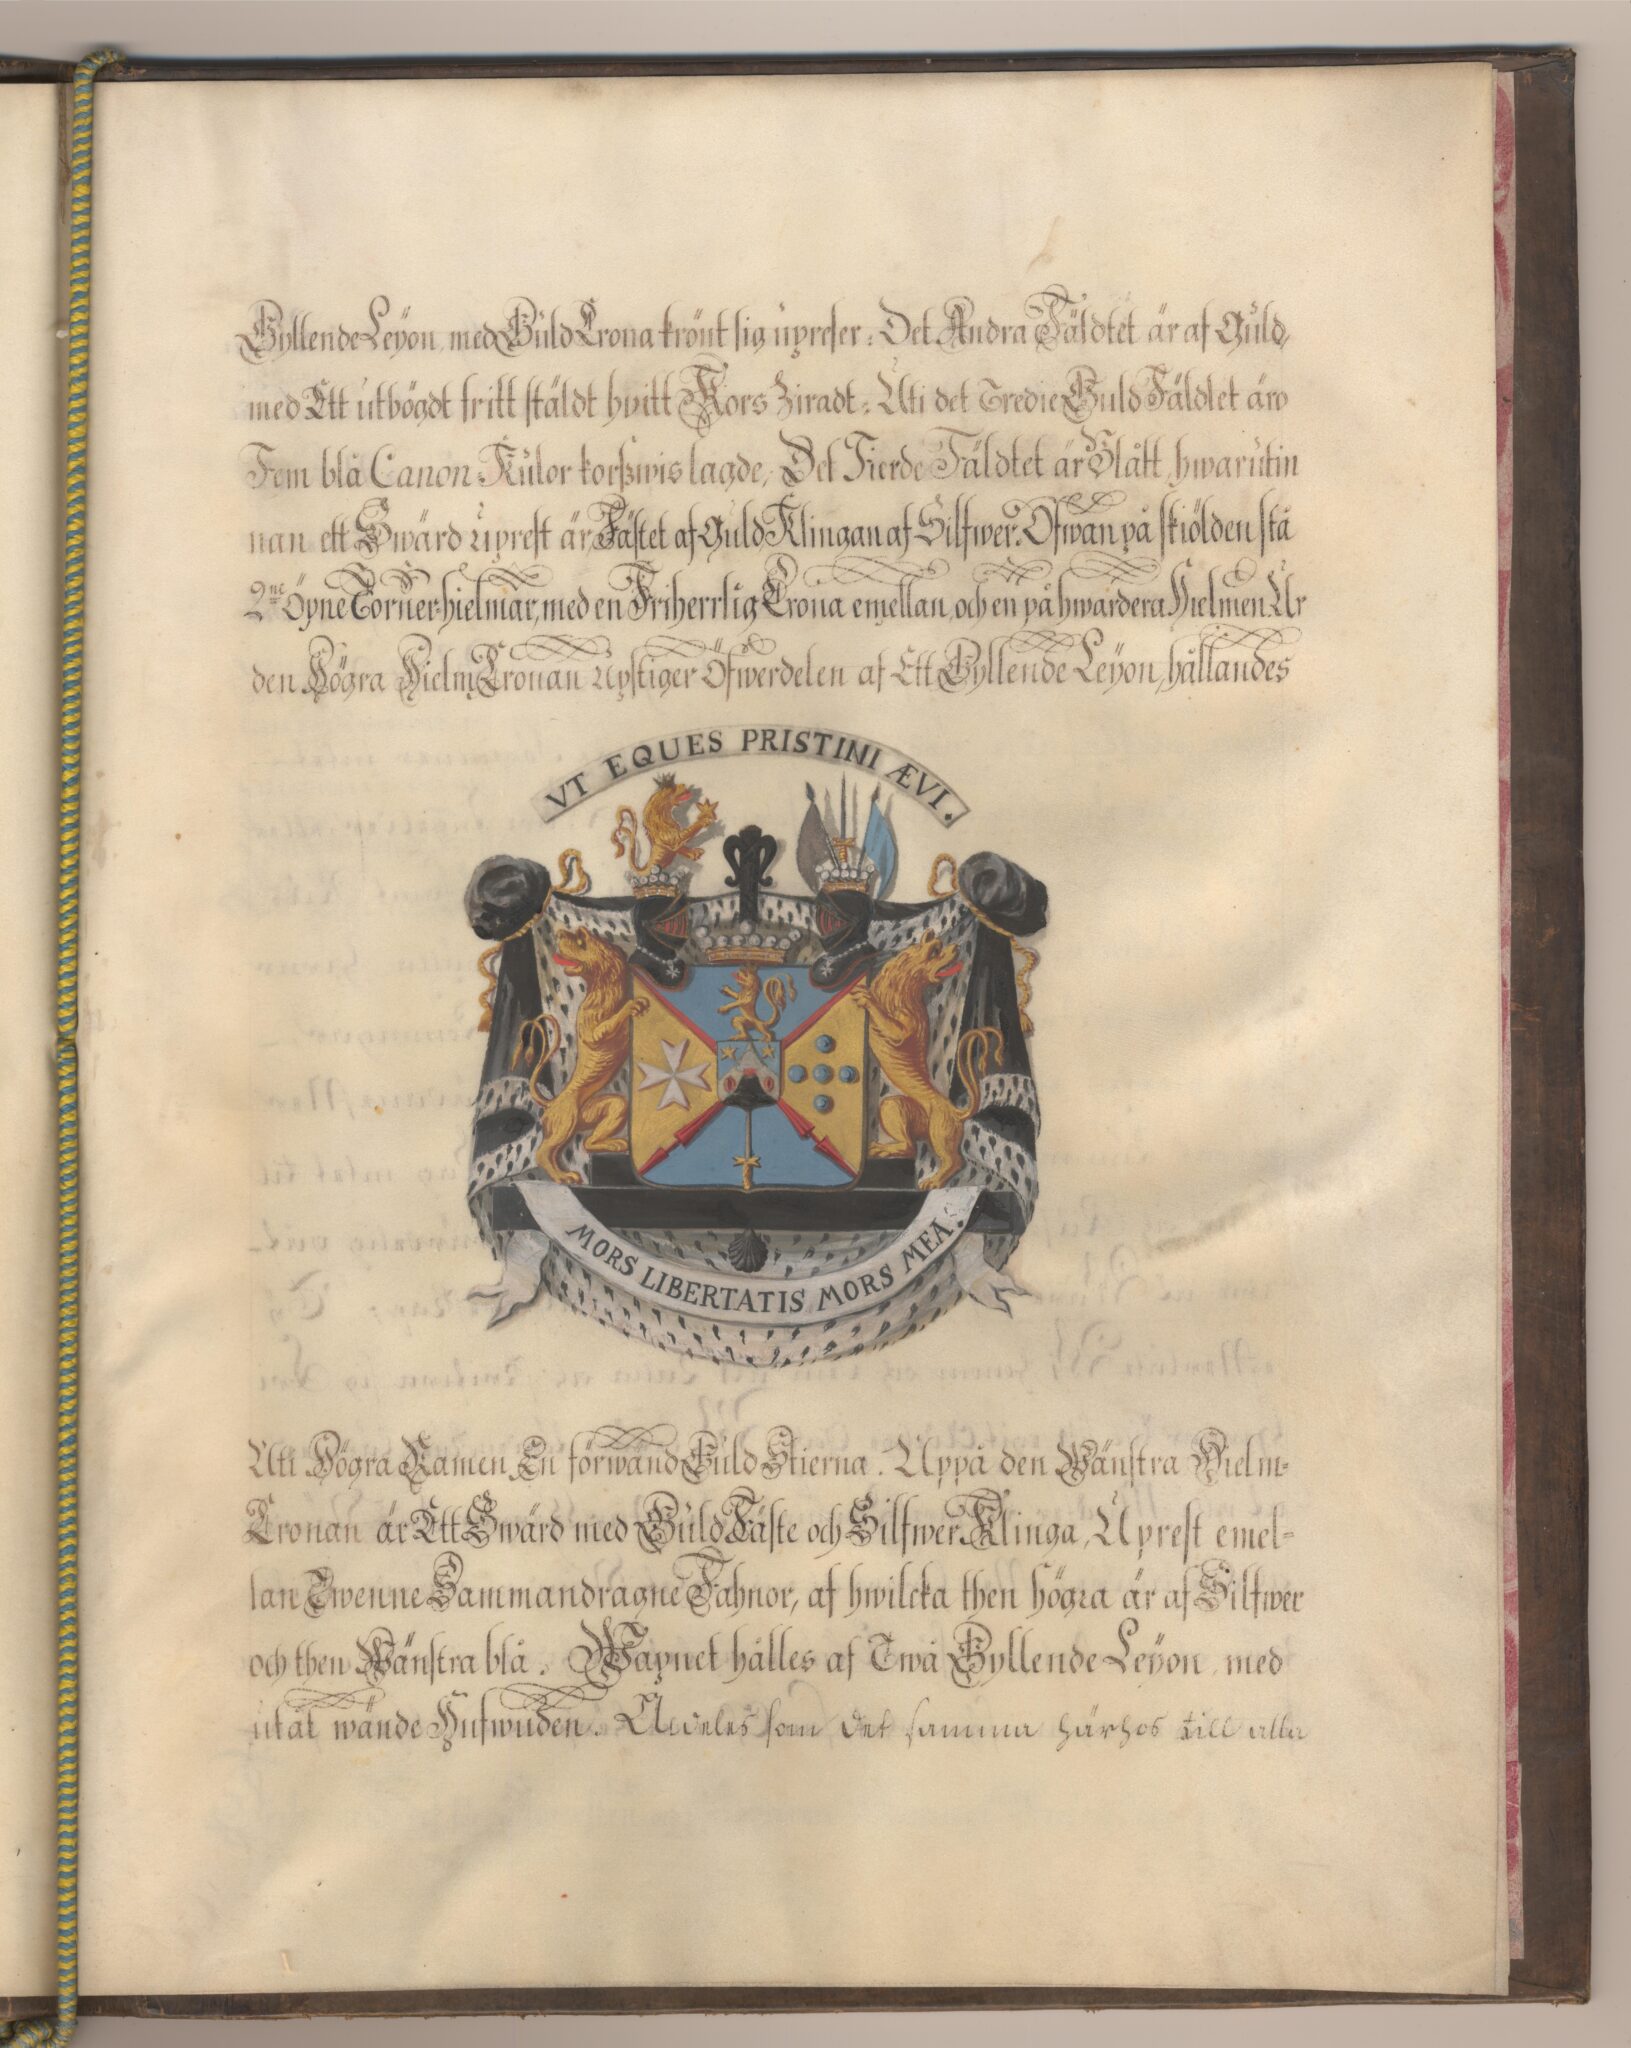 Gyllende Leÿon, med Guld Crona krönt sig upreser. Det Andra Fäldtet är af Guld,
med Ett utbögdt fritt stäldt hvitt Kors Ziradt. Uti det Tredie Guld Fäldtet äro
Fem blå Canon-Kulor korßwis lagde, Det Fierde Fäldtet är Blått, hwarutin
nan ett Swärd uprest är, Fästet af Guld Klingan af Silfwer. Ofwan på skiölden stå
2ne Öpne Torner-hielmar, med en Friherrlig Crona emellan, och en på hwardera Hielmen. Ur
den Högra Hielm Cronan upstiger Öfwerdelen af Ett Gyllende Leÿon, hållandes
VT EQUES PRISTINI ÆVI.
MORS LIBERTATIS MORS MEA.
Uti Högra Ramen En förwänd Guld Stierna. Uppå den Wänstra Hielm-
Cronan är Ett Swärd med Guld Fäste och Silfwer Klinga, Uprest emel-
lan Twenne Sammandragne Fahnor, af hwilcka then högra är af Silfwer
och then Wänstra blå. Wapnet hålles af Twå Gyllende Leÿon, med
utåt wände Hufwuden. Aldeles som det samma härhos till alla